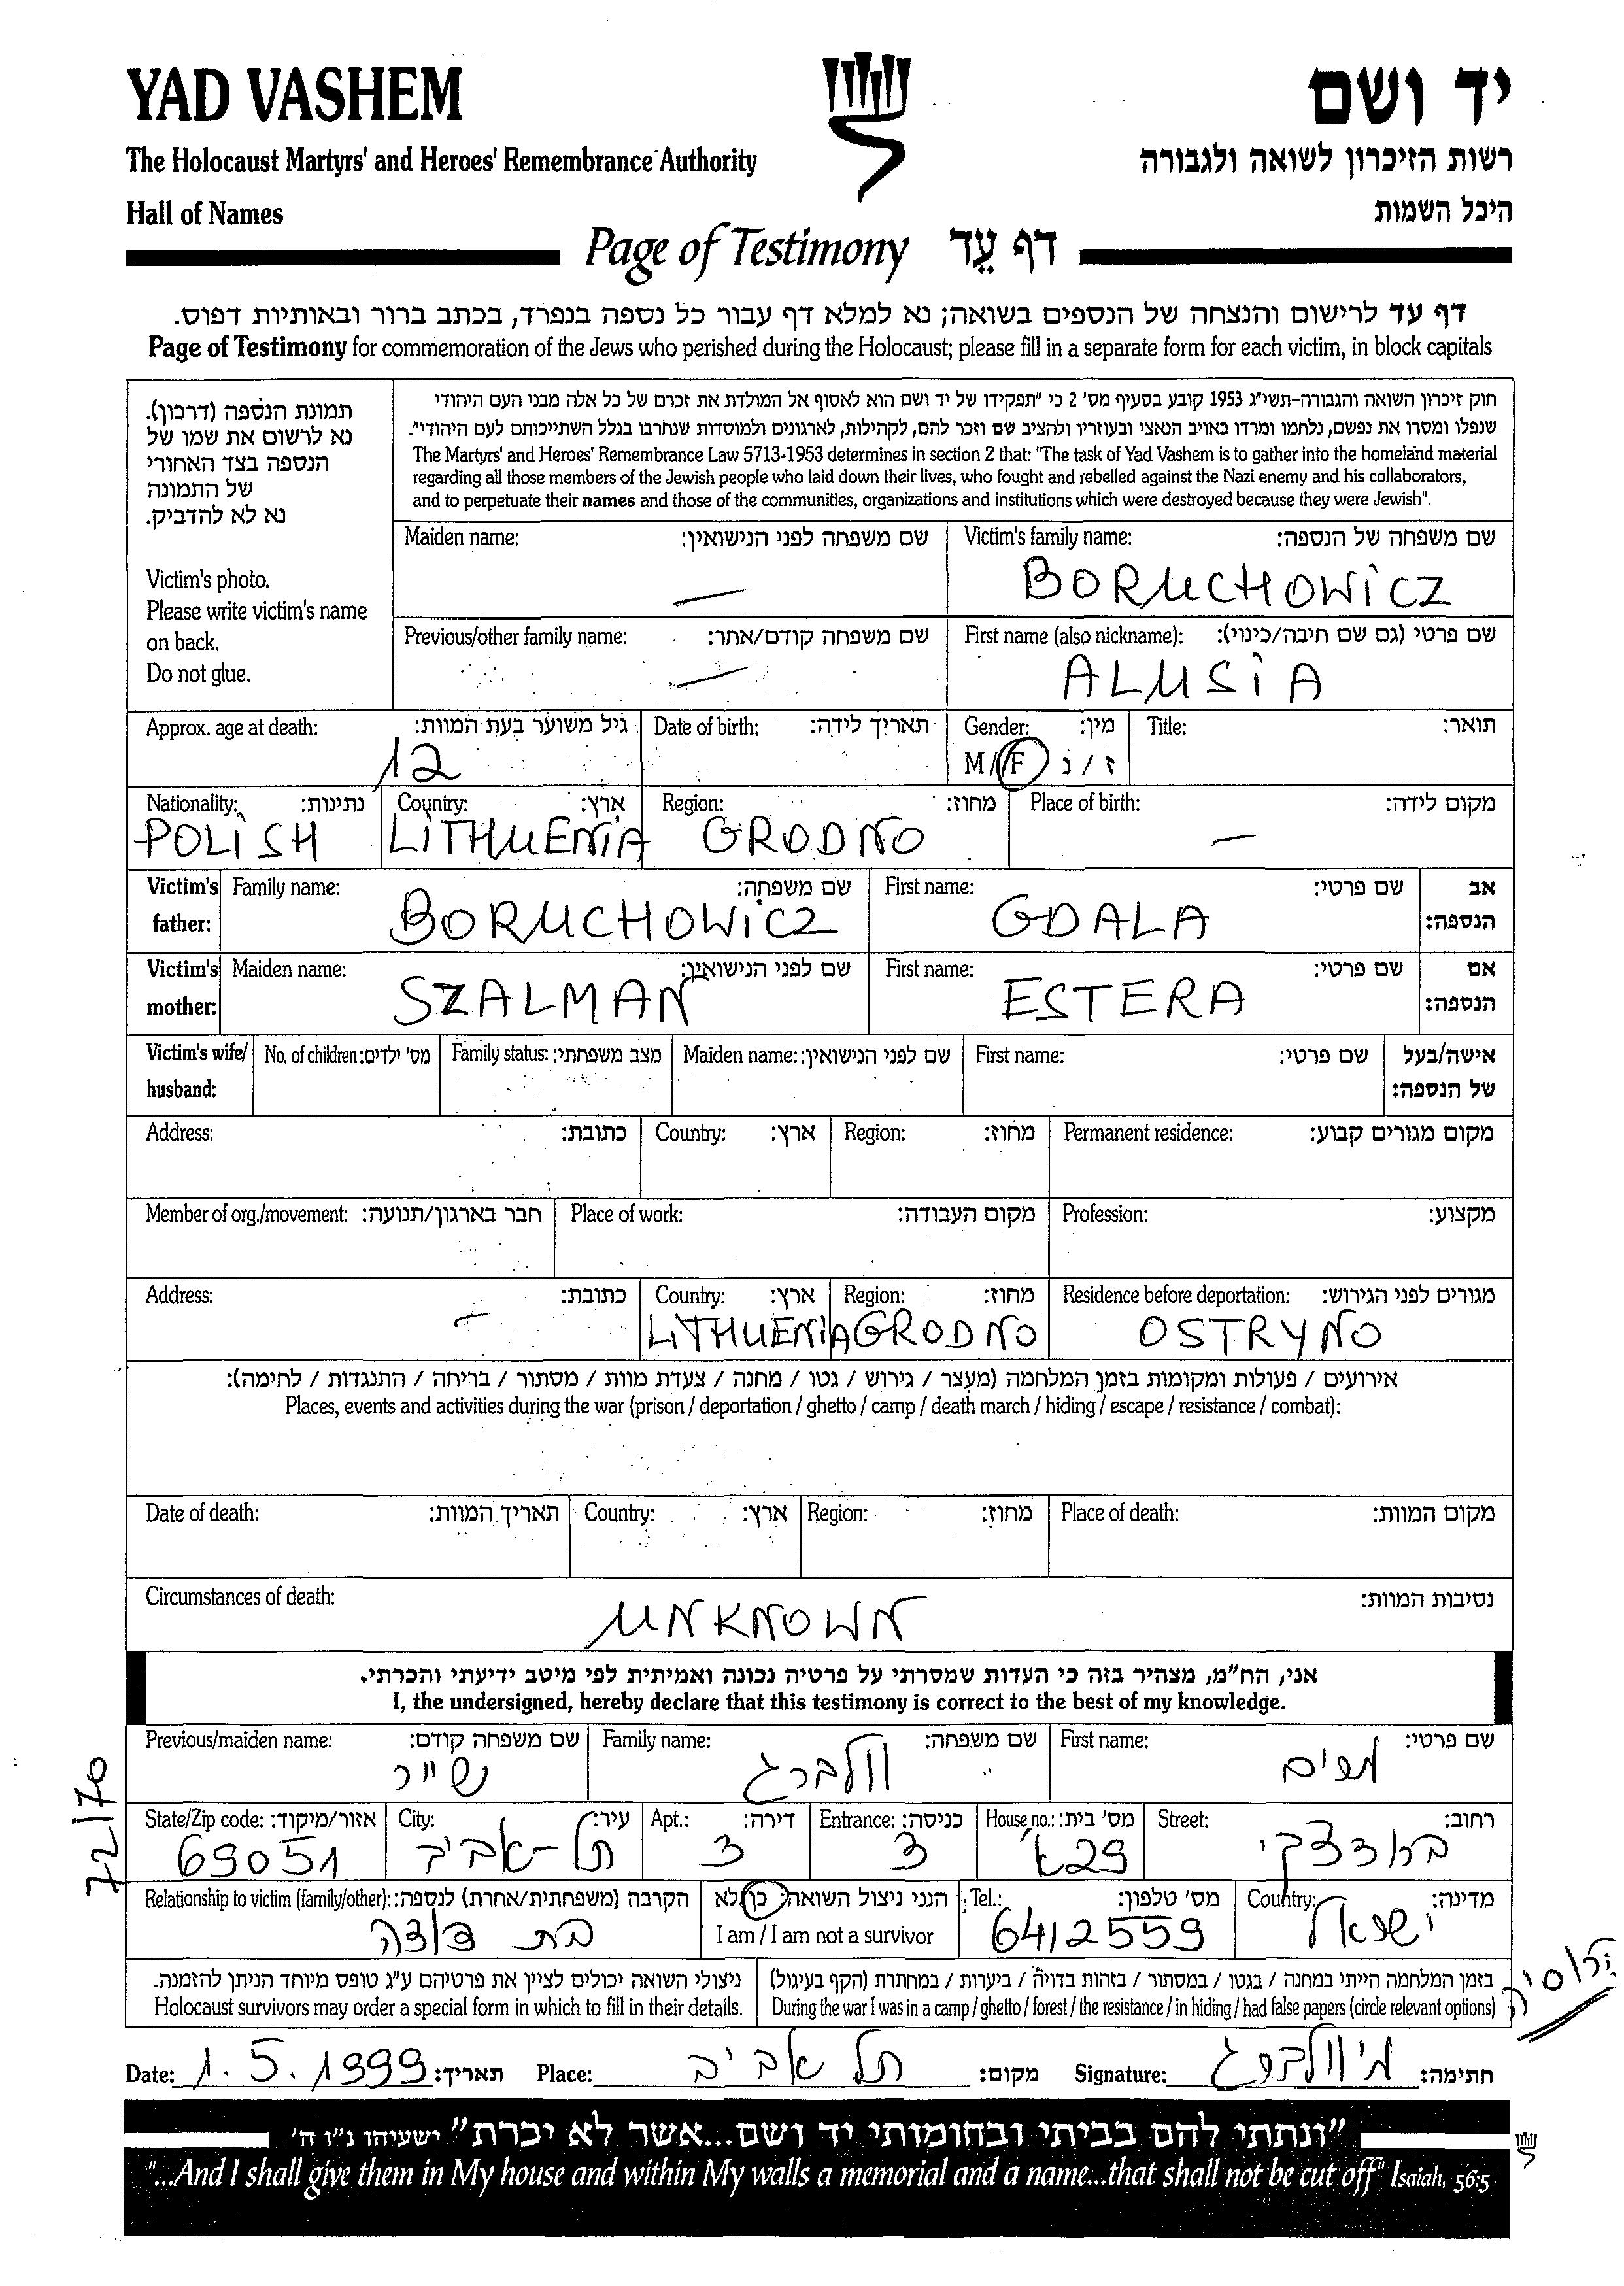 YAD VASHEM
יד ושם
The Holocaust Martyrs' and Heroes' Remembrance Authority
רשות הזיכרון לשואה ולגבורה
Hall of Names
היכל השמות
Page of Testimony דף עֵד
דף עד לרישום והנצחה של הנספים בשואה; נא למלא דף עבור כל נספה בנפרד, בכתב ברור ובאותיות דפוס.
Page of Testimony for commemoration of the Jews who perished during the Holocaust; please fill in a separate form for each victim, in block capitals
תמונת הנספה (דרכון).
נא לרשום את שמו של
הנספה בצד האחורי
של התמונה
נא לא להדביק.
Victim's photo.
Please write victim's name
on back.
Do not glue.
חוק זיכרון השואה והגבורה-תשי"ג 1953 קובע בסעיף מס' 2 כי "תפקידו של יד ושם הוא לאסוף אל המולדת את זכרם של כל אלה מבני העם היהודי
שנפלו ומסרו את נפשם, נלחמו ומרדו באויב הנאצי ובעוזריו ולהציב שם וזכר להם, לקהילות, לארגונים ולמוסדות שנחרבו בגלל השתייכותם לעם היהודי".
The Martyrs' and Heroes' Remembrance Law 5713-1953 determines in section 2 that: "The task of Yad Vashem is to gather into the homeland material
regarding all those members of the Jewish people who laid down their lives, who fought and rebelled against the Nazi enemy and his collaborators,
and to perpetuate their names and those of the communities, organizations and institutions which were destroyed because they were Jewish".
Maiden name: שם משפחה לפני הנישואין: Victim's family name: שם משפחה של הנספה:
— BORUCHOWICZ
Previous/other family name: שם משפחה קודם/אחר: First name (also nickname): שם פרטי (גם שם חיבה/כינוי):
— ALUSIA
Approx. age at death: גיל משוער בעת המוות: Date of birth: תאריך לידה: Gender: מין: Title: תואר:
12 M/F ז/נ
Nationality: נתינות: Country: ארץ: Region: מחוז: Place of birth: מקום לידה:
POLISH LITHUENIA GRODNO —
Victim's father: Family name: שם משפחה: First name: שם פרטי: אב הנספה:
BORUCHOWICZ GDALA
Victim's mother: Maiden name: שם לפני הנישואין: First name: שם פרטי: אם הנספה:
SZALMAN ESTERA
Victim's wife/ husband: No. of children: מס' ילדים: Family status: מצב משפחתי: Maiden name: שם לפני הנישואין: First name: שם פרטי: אישה/בעל של הנספה:
Address: כתובת: Country: ארץ: Region: מחוז: Permanent residence: מקום מגורים קבוע:
Member of org./movement: חבר בארגון/תנועה: Place of work: מקום העבודה: Profession: מקצוע:
Address: כתובת: Country: ארץ: Region: מחוז: Residence before deportation: מגורים לפני הגירוש:
— LITHUENIA GRODNO OSTRYNO
אירועים / פעולות ומקומות בזמן המלחמה (מעצר / גירוש / גטו / מחנה / צעדת מוות / מסתור / בריחה / התנגדות / לחימה):
Places, events and activities during the war (prison / deportation / ghetto / camp / death march / hiding / escape / resistance / combat):
Date of death: תאריך המוות: Country: ארץ: Region: מחוז: Place of death: מקום המוות:
Circumstances of death: נסיבות המוות:
UNKNOWN
אני, הח"מ, מצהיר בזה כי העדות שמסרתי על פרטיה נכונה ואמיתית לפי מיטב ידיעתי והכרתי.
I, the undersigned, hereby declare that this testimony is correct to the best of my knowledge.
Previous/maiden name: שם משפחה קודם: Family name: שם משפחה: First name: שם פרטי:
וולברג
72/70
State/Zip code: אזור/מיקוד: City: עיר: Apt.: דירה: Entrance: כניסה: House no.: מס' בית: Street: רחוב:
69051 תל-אביב 3 3 29א' ברודצקי
Relationship to victim (family/other): הקרבה (משפחתית/אחרת) לנספה: הנני ניצול השואה: כן/לא Tel.: מס' טלפון: Country: מדינה:
בת דודה I am / I am not a survivor 6412559 ישראל
ניצולי השואה יכולים לציין את פרטיהם ע"ג טופס מיוחד הניתן להזמנה. בזמן המלחמה הייתי במחנה / בגטו / במסתור / בזהות בדויה / ביערות / במחתרת (הקף בעיגול)
Holocaust survivors may order a special form in which to fill in their details. During the war I was in a camp / ghetto / forest / the resistance / in hiding / had false papers (circle relevant options)
Date: 1.5.1999 תאריך: Place: תל אביב מקום: Signature: מ' וולברג חתימה:
"ונתתי להם בביתי ובחומותי יד ושם...אשר לא יכרת" ישעיהו נ"ו ה'
"...And I shall give them in My house and within My walls a memorial and a name...that shall not be cut off" Isaiah, 56:5